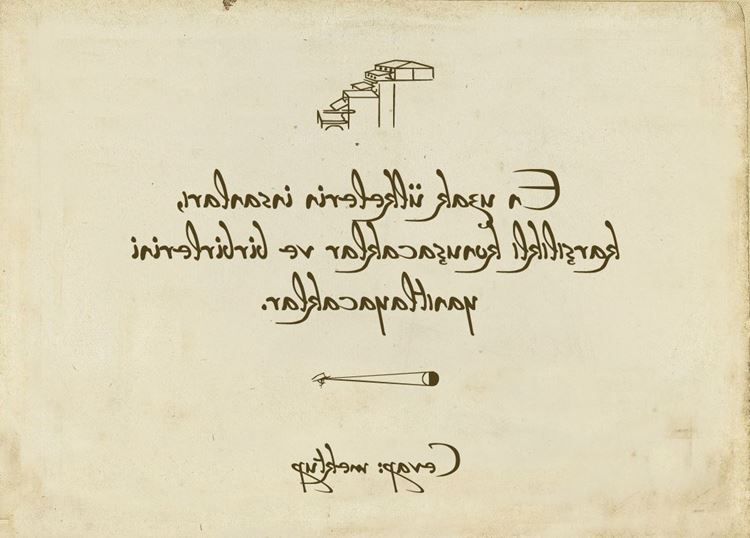 En uzak ülkelerin insanları,
karşılıklı konuşacaklar ve birbirlerini
yanıtlayacaklar.
Cevap: mektup